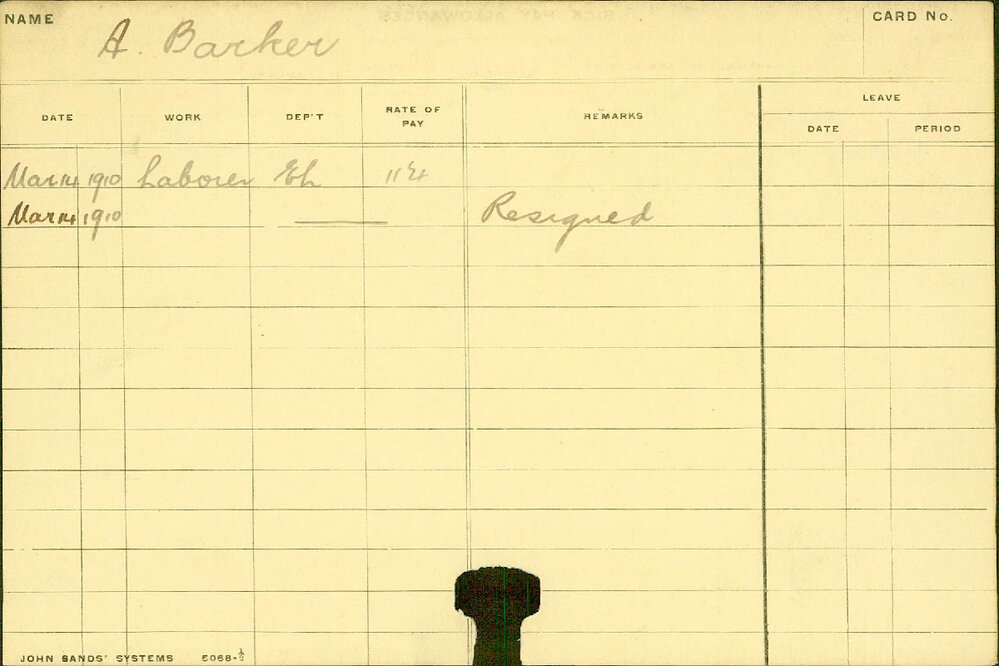 NAME A. Barker CARD No.
LEAVE
DATE WORK DEP'T RATE OF PAY REMARKS DATE PERIOD
Mar 14 1910 Laborer Eh
Mar 14 1910 Resigned
JOHN SANDS' SYSTEMS E068-½